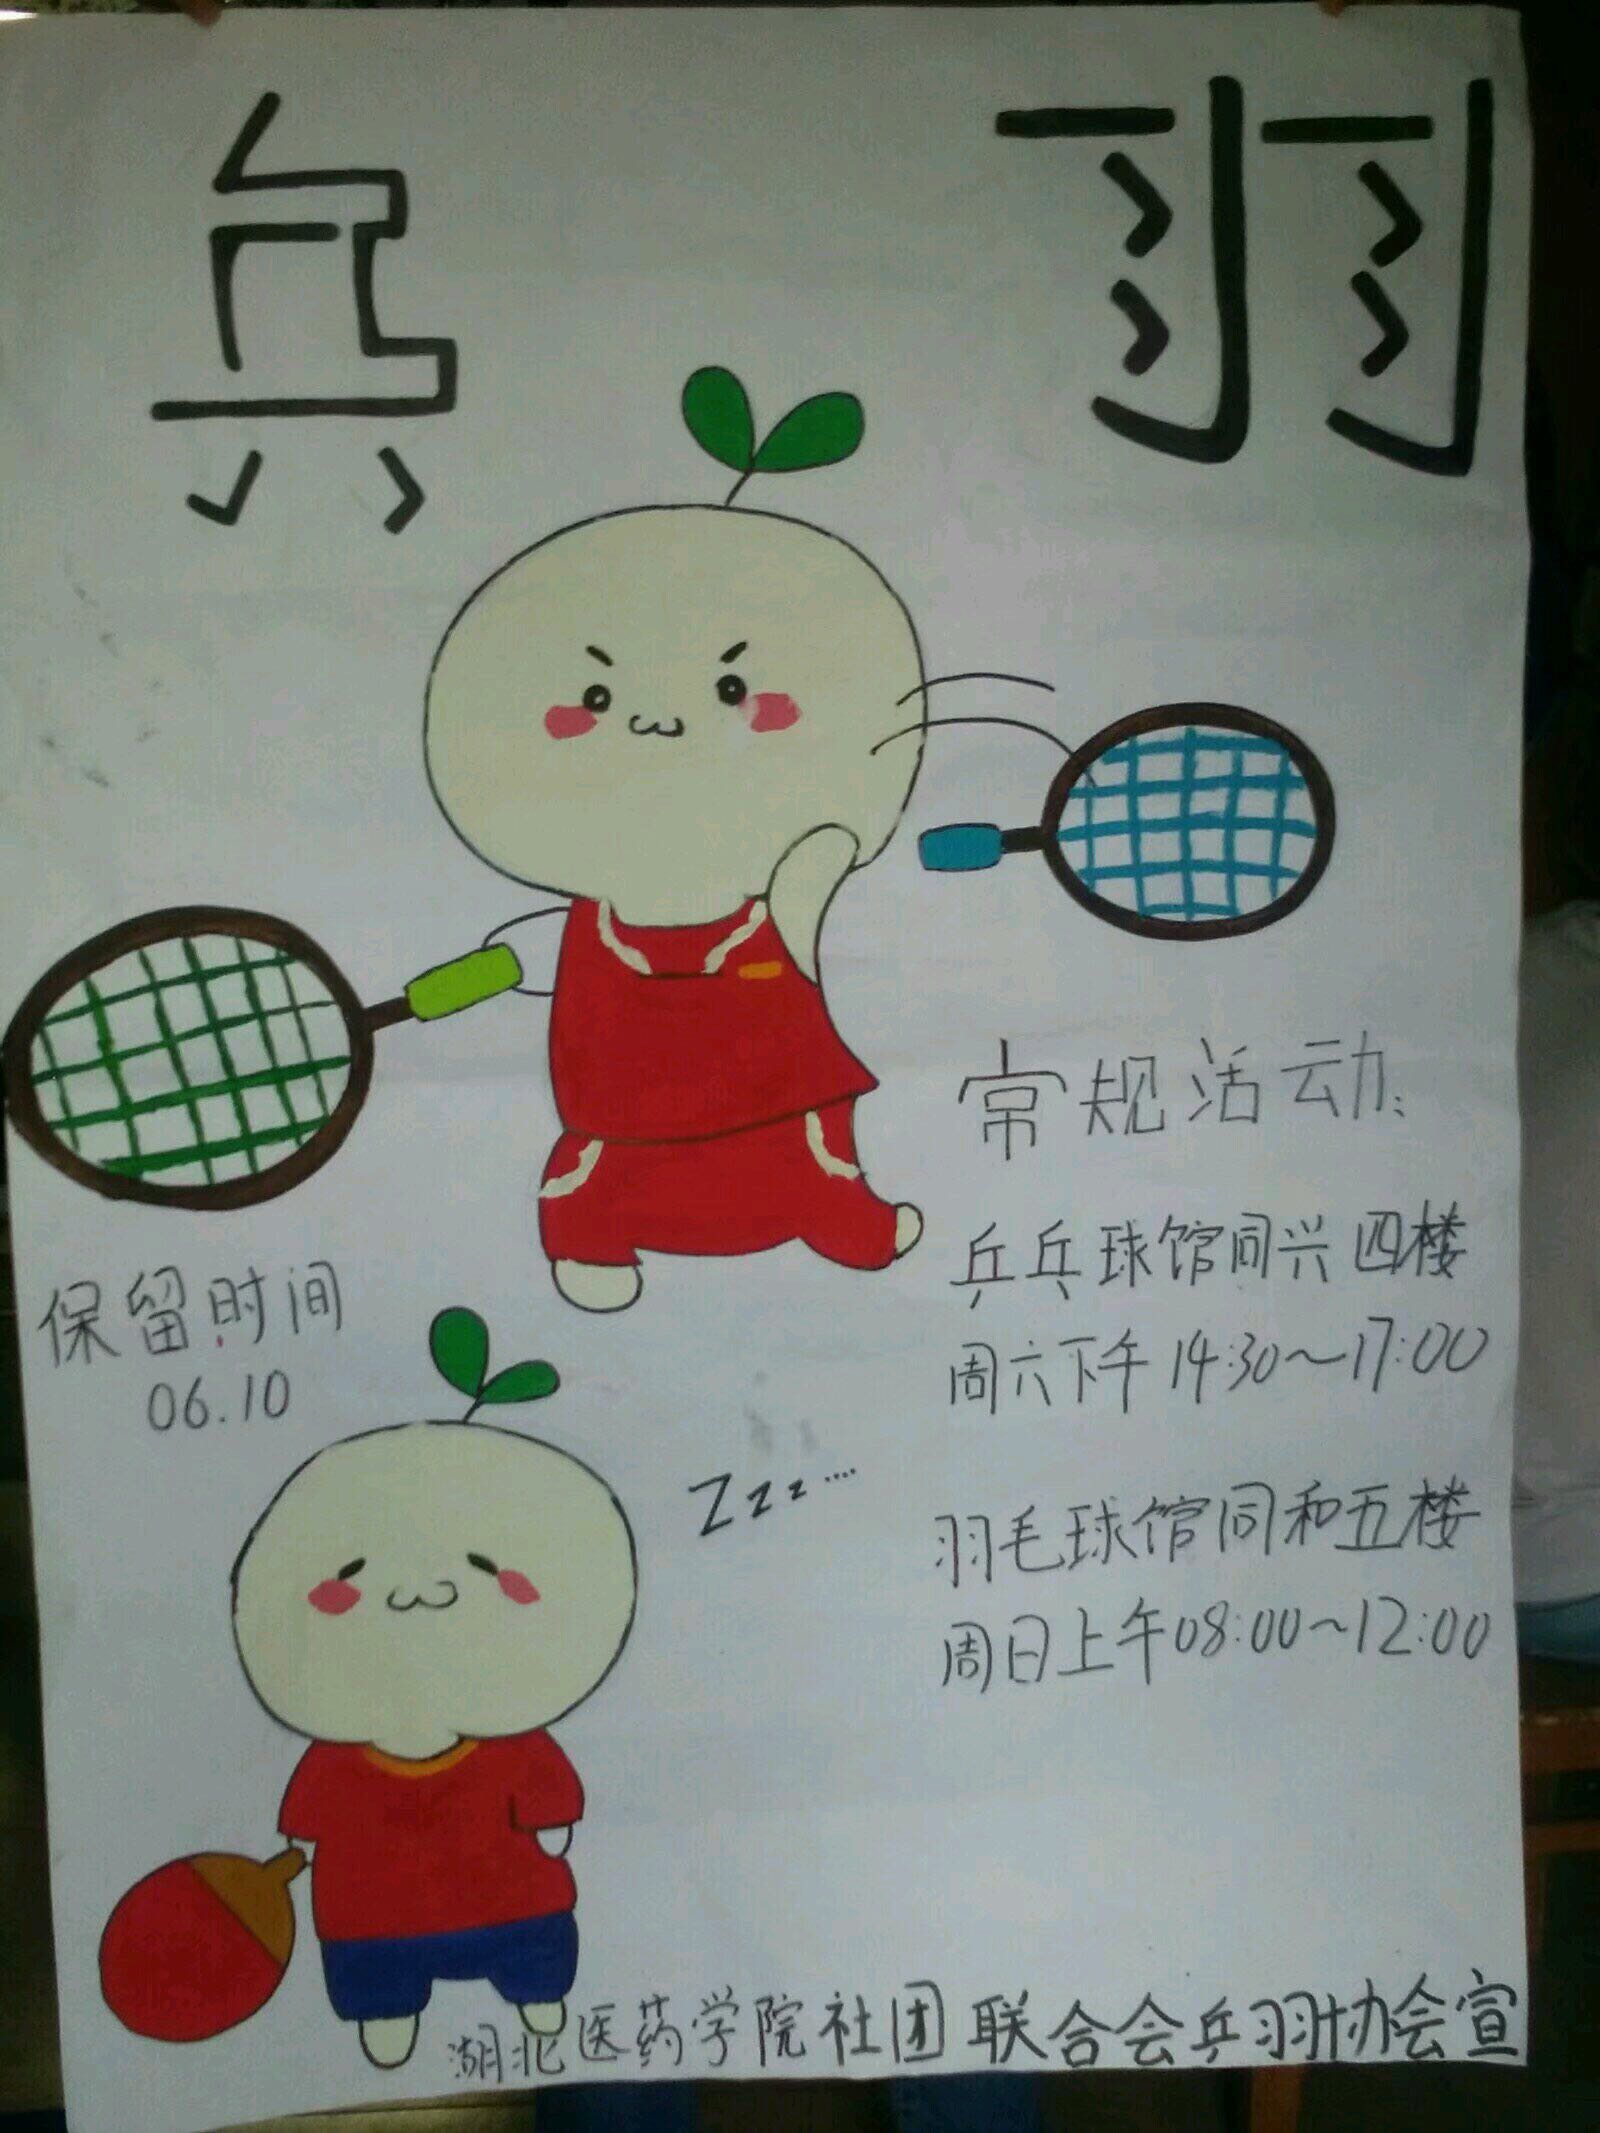 乒 羽
常规活动:
乒乓球馆同兴四楼
周六下午14:30~17:00
羽毛球馆同和五楼
周日上午08:00~12:00
保留时间
06.10
Zzz....
湖北医药学院社团联合会乒羽协会宣